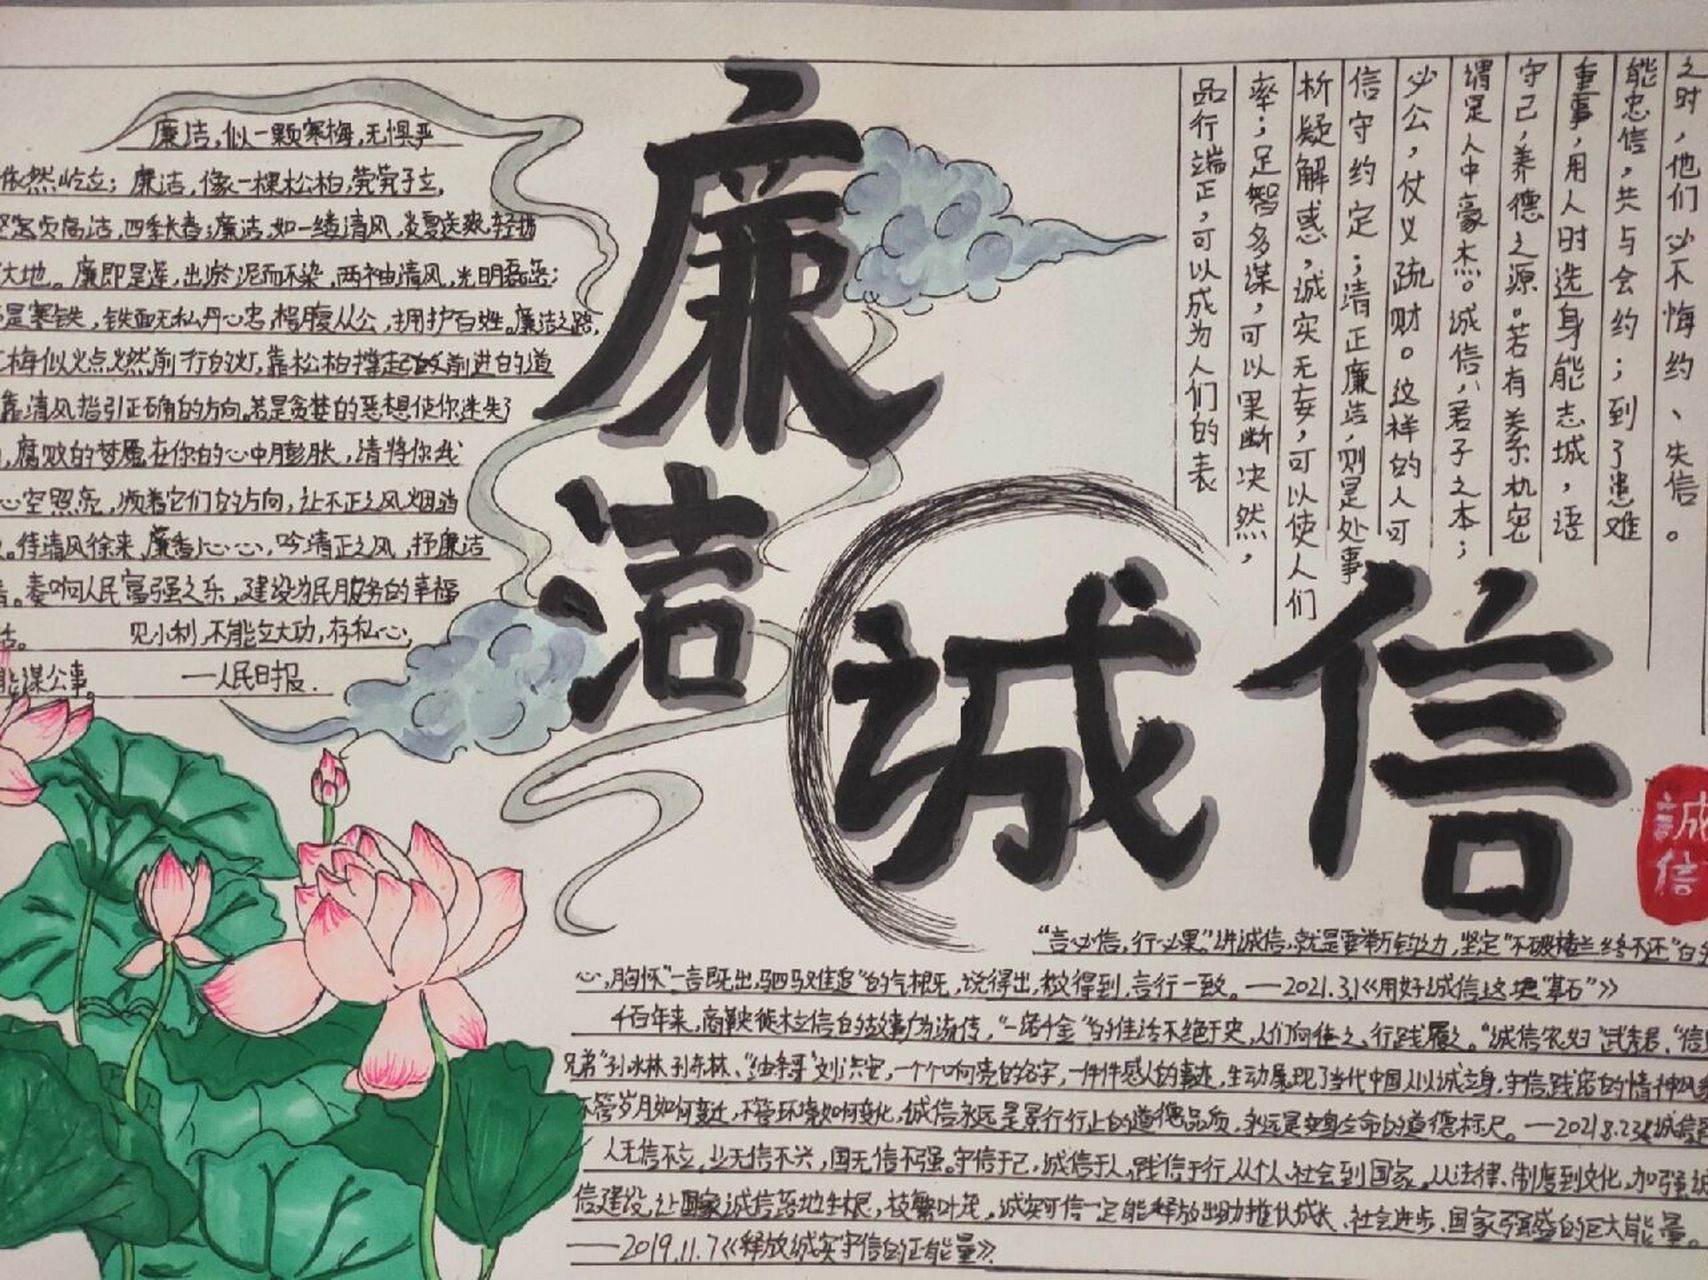 廉洁,似一颗寒梅,无惧严
依然屹立；廉洁,像一棵松柏,茕茕孑立,
坚室贞高洁,四季长春；廉洁,如一缕清风,炎夏送爽,轻拂
大地。廉即是莲,出淤泥而不染,两袖清风,光明磊落；
是寒铁,铁面无私丹心忠,枵腹从公,拥护百姓。廉洁之路,
红梅似火点燃前行的灯,靠松柏撑起前进的道
靠清风指引正确的方向。若是贪婪的恶想使你迷失了
,腐败的梦魇在你的心中膨胀,请将你我
心空照亮,顺着它们的方向,让不正之风烟消
。待清风徐来,廉香沁心,吟清正之风,抒廉洁
。奏响人民富强之乐,建设为民服务的幸福
洁。 见小利,不能立大功,存私心,
能谋公事。 —人民日报.
廉
洁
诚信
之时，他们必不悔约、失信。
能忠信，共与会约；到了患难
重事，用人时选身能志城，语
守己，养德之源。若有关系机密
谓是人中豪杰。诚信，君子之本；
必公，仗义疏财。这样的人可
信守约定；清正廉洁，则是处事
析疑解惑，诚实无妄，可以使人们
率；足智多谋，可以果断决然，
品行端正，可以成为人们的表
誠
信
“言必信,行必果。”讲诚信,就是要举万钧之力,坚定“不破楼兰终不还”的
心,胸怀“一言既出,驷马难追”的气概,说得出,做得到,言行一致。—2021.3.1《用好诚信这块“基石”》
千百年来,商鞅徙木立信的故事广为流传,“一诺千金”的佳话不绝于史,人们向往之、行践履之。“诚信农妇”武秀君、“信
兄弟”孙水林、孙东林、“油条哥”刘洪安,一个个响亮的名字,一件件感人的事迹,生动展现了当代中国人以诚立身,守信践诺的精神风
不管岁月如何变迁,不管环境如何变化,诚信永远是景行行止的道德品质,永远是安身立命的道德标尺。—2021.8.23《诚信
人无信不立,业无信不兴,国无信不强。守信于己,诚信于人,践信于行,从个人、社会到国家,从法律、制度到文化,加强诚
信建设,让国家诚信落地生根,枝繁叶茂,诚实可信一定能释放出助推个人成长、社会进步、国家强盛的巨大能量。
—2019.11.7《释放诚实守信的正能量》